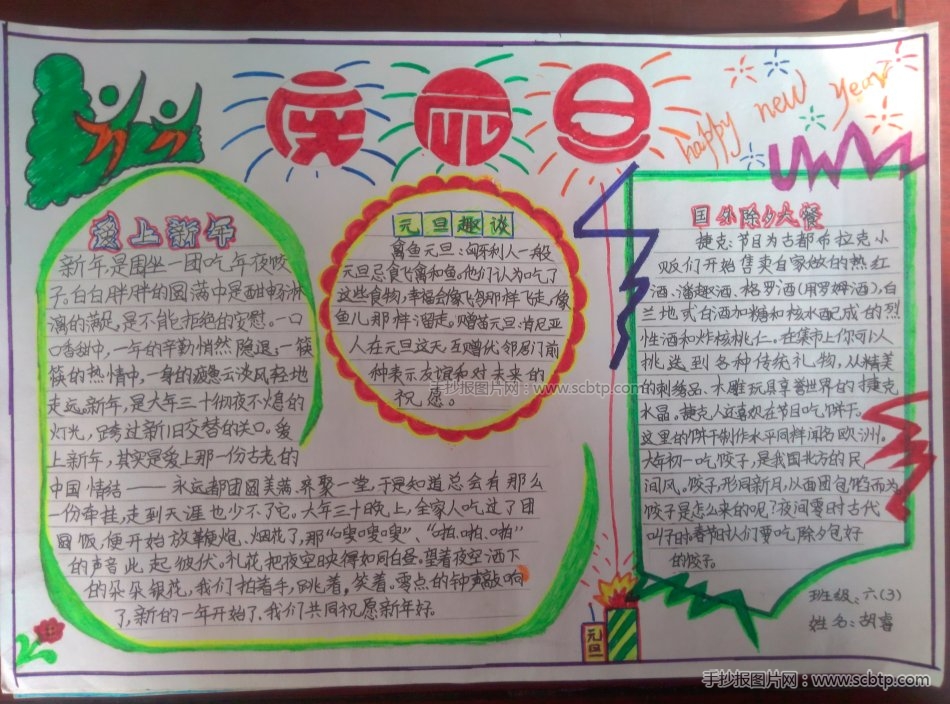 庆元旦
happy new year
爱上新年
新年,是围坐一团吃年夜饺
子。白白胖胖的圆满中是酣畅淋
漓的满足,是不能拒绝的安慰。一口
口香甜中,一年的辛勤悄然隐退;一筷
筷的热情中,一身的疲惫云淡风轻地
走远。新年,是大年三十彻夜不熄的
灯光,跨过新旧交替的关口。爱
上新年,其实是爱上那一份古老的
中国情结——永远都团圆美满,齐聚一堂,于是知道总会有那么
一份牵挂,走到天涯也少不了它。大年三十晚上,全家人吃过了团
圆饭,便开始放鞭炮、烟花了,那“嗖嗖嗖”、“啪啪啪”
的声音此起彼伏。礼花把夜空映得如同白昼。望着夜空洒下
的朵朵银花,我们拍着手,跳着,笑着。零点的钟声敲响
了,新的一年开始了,我们共同祝愿新年好。
元旦趣谈
禽鱼元旦:匈牙利人一般
元旦忌食飞禽和鱼。他们认为吃了
这些食物,幸福会像飞鸟那样飞走,像
鱼儿那样溜走。赠苗元旦:肯尼亚
人在元旦这天互赠优邻居门前
种表示友谊和对未来的
祝愿。
手抄报图片网:www.scbtp.com
国外除夕大餐
捷克:节目为古都布拉克小
贩们开始售卖自家做的热红
酒、潘趣酒、格罗酒(用罗姆酒),白
兰地或白酒加糖和核水配成的烈
性酒和炸核桃仁。在集市上你可以
挑选到各种传统礼物,从精美
的刺绣品、木雕玩具享誉世界的捷克
水晶。捷克人还喜欢在节目吃饼干。
这里的饼干制作水平同样闻名欧洲。
大年初一吃饺子,是我国北方的民
间风。饺子,形同新月,以面团包馅而为
饺子是怎么来的呢?夜间零时古代
叫子时,春节时人们要吃除夕包好
的饺子。
元旦
班级:六(3)
姓名:胡睿
手抄报图片网:www.scbtp.com